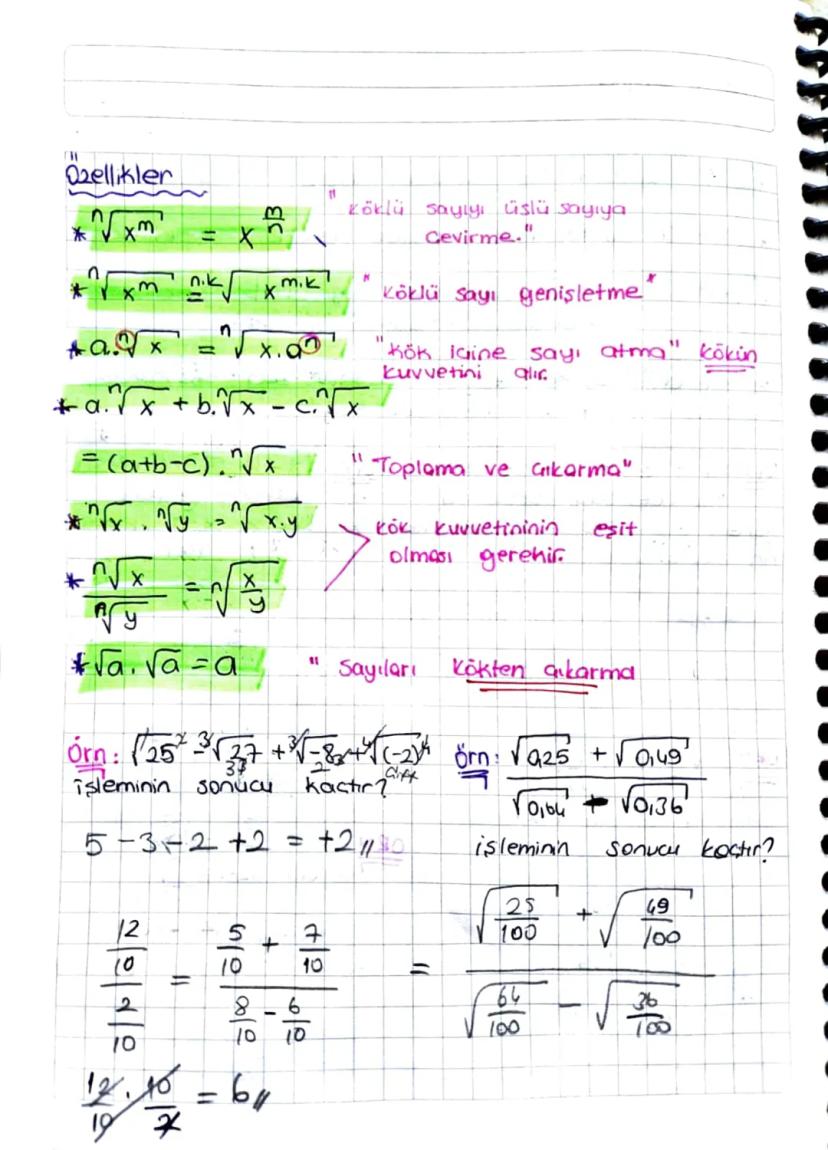 Özellikler
* ⁿ√x^m = x^(m/n) " köklü sayıyı üslü sayıya
çevirme."
* ⁿ√x^m = ^(n.k)√x^(m.k) "köklü sayı genişletme"
* a.ⁿ√x = ⁿ√x.aⁿ "kök içine sayı atma" kökün
kuvvetini alır.
* a.ⁿ√x + b.ⁿ√x - c.ⁿ√x
= (a+b-c).ⁿ√x "Toplama ve çıkarma"
* ⁿ√x . ⁿ√y = ⁿ√x.y
kök kuvvetininin eşit
olması gerekir.
* ⁿ√x / ⁿ√y = ⁿ√(x/y)
* √a . √a = a " sayıları kökten çıkarma
Örn: √25 - ³√27 + ³√-8 + ⁴√(-2)⁴
işleminin sonucu kaçtır?
5 - 3 - 2 + 2 = +2 //
Örn: (√0,25 + √0,49) / (√0,64 - √0,36)
işleminin sonucu kaçtır?
(12/10) / (2/10) = (5/10 + 7/10) / (8/10 - 6/10) = (√(25/100) + √(49/100)) / (√(64/100) - √(36/100))
12/10 . 10/2 = 6 //